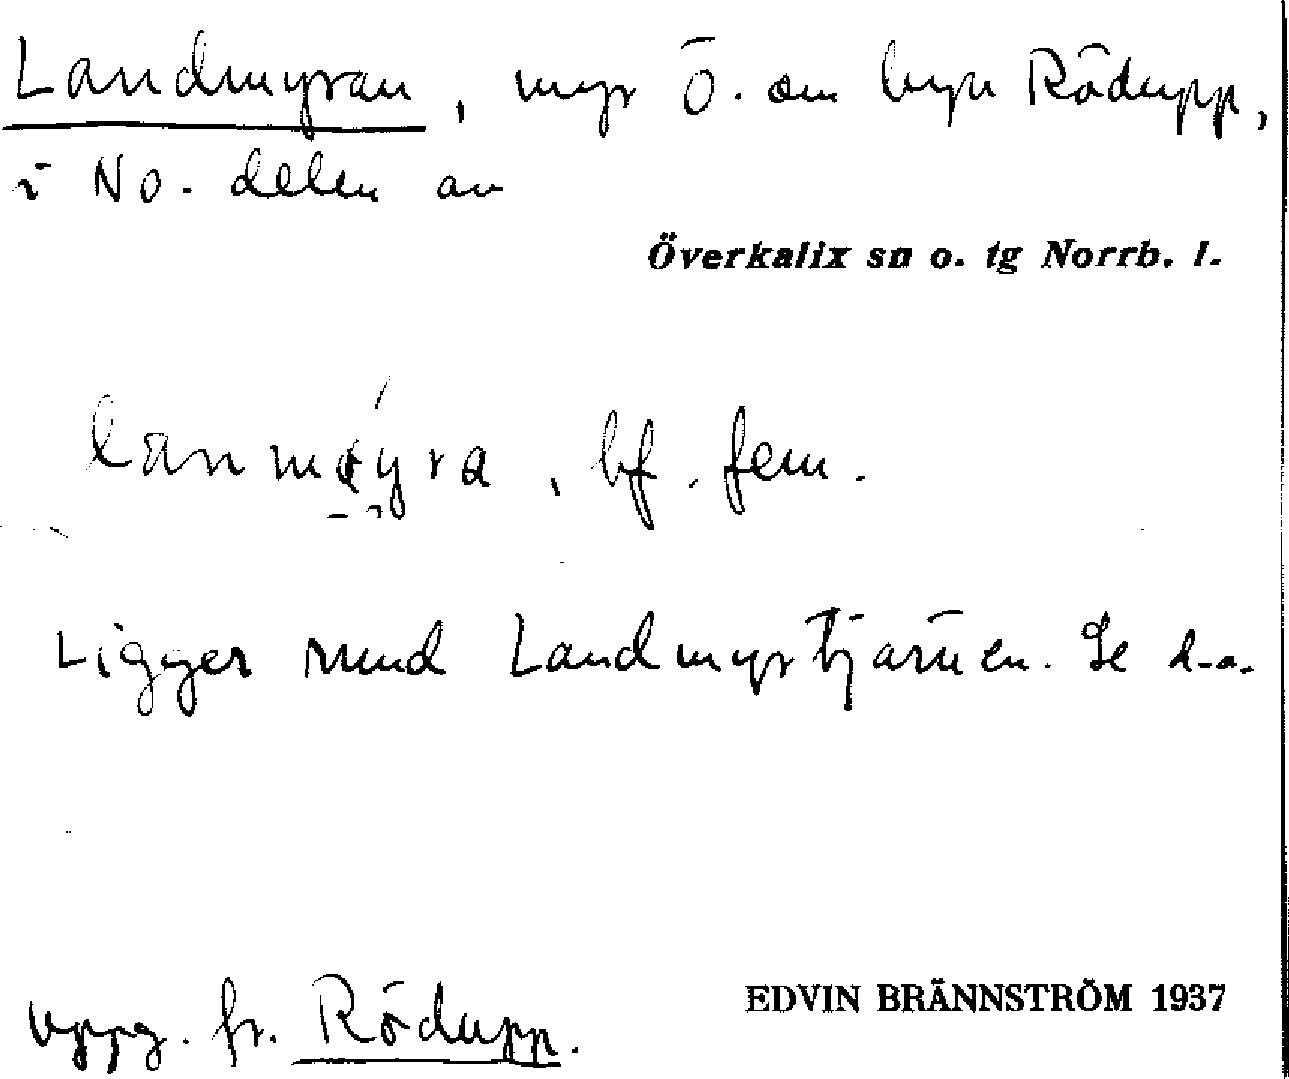 Landmyran, myr Ö. om byn Rödupp,
i NO. delen av
Överkalix sn o. tg Norrb. l.
bf. fem.
Ligger rund Landmyrtjärnen. Se d.o.
Uppg. fr. Rödupp.
EDVIN BRÄNNSTRÖM 1937